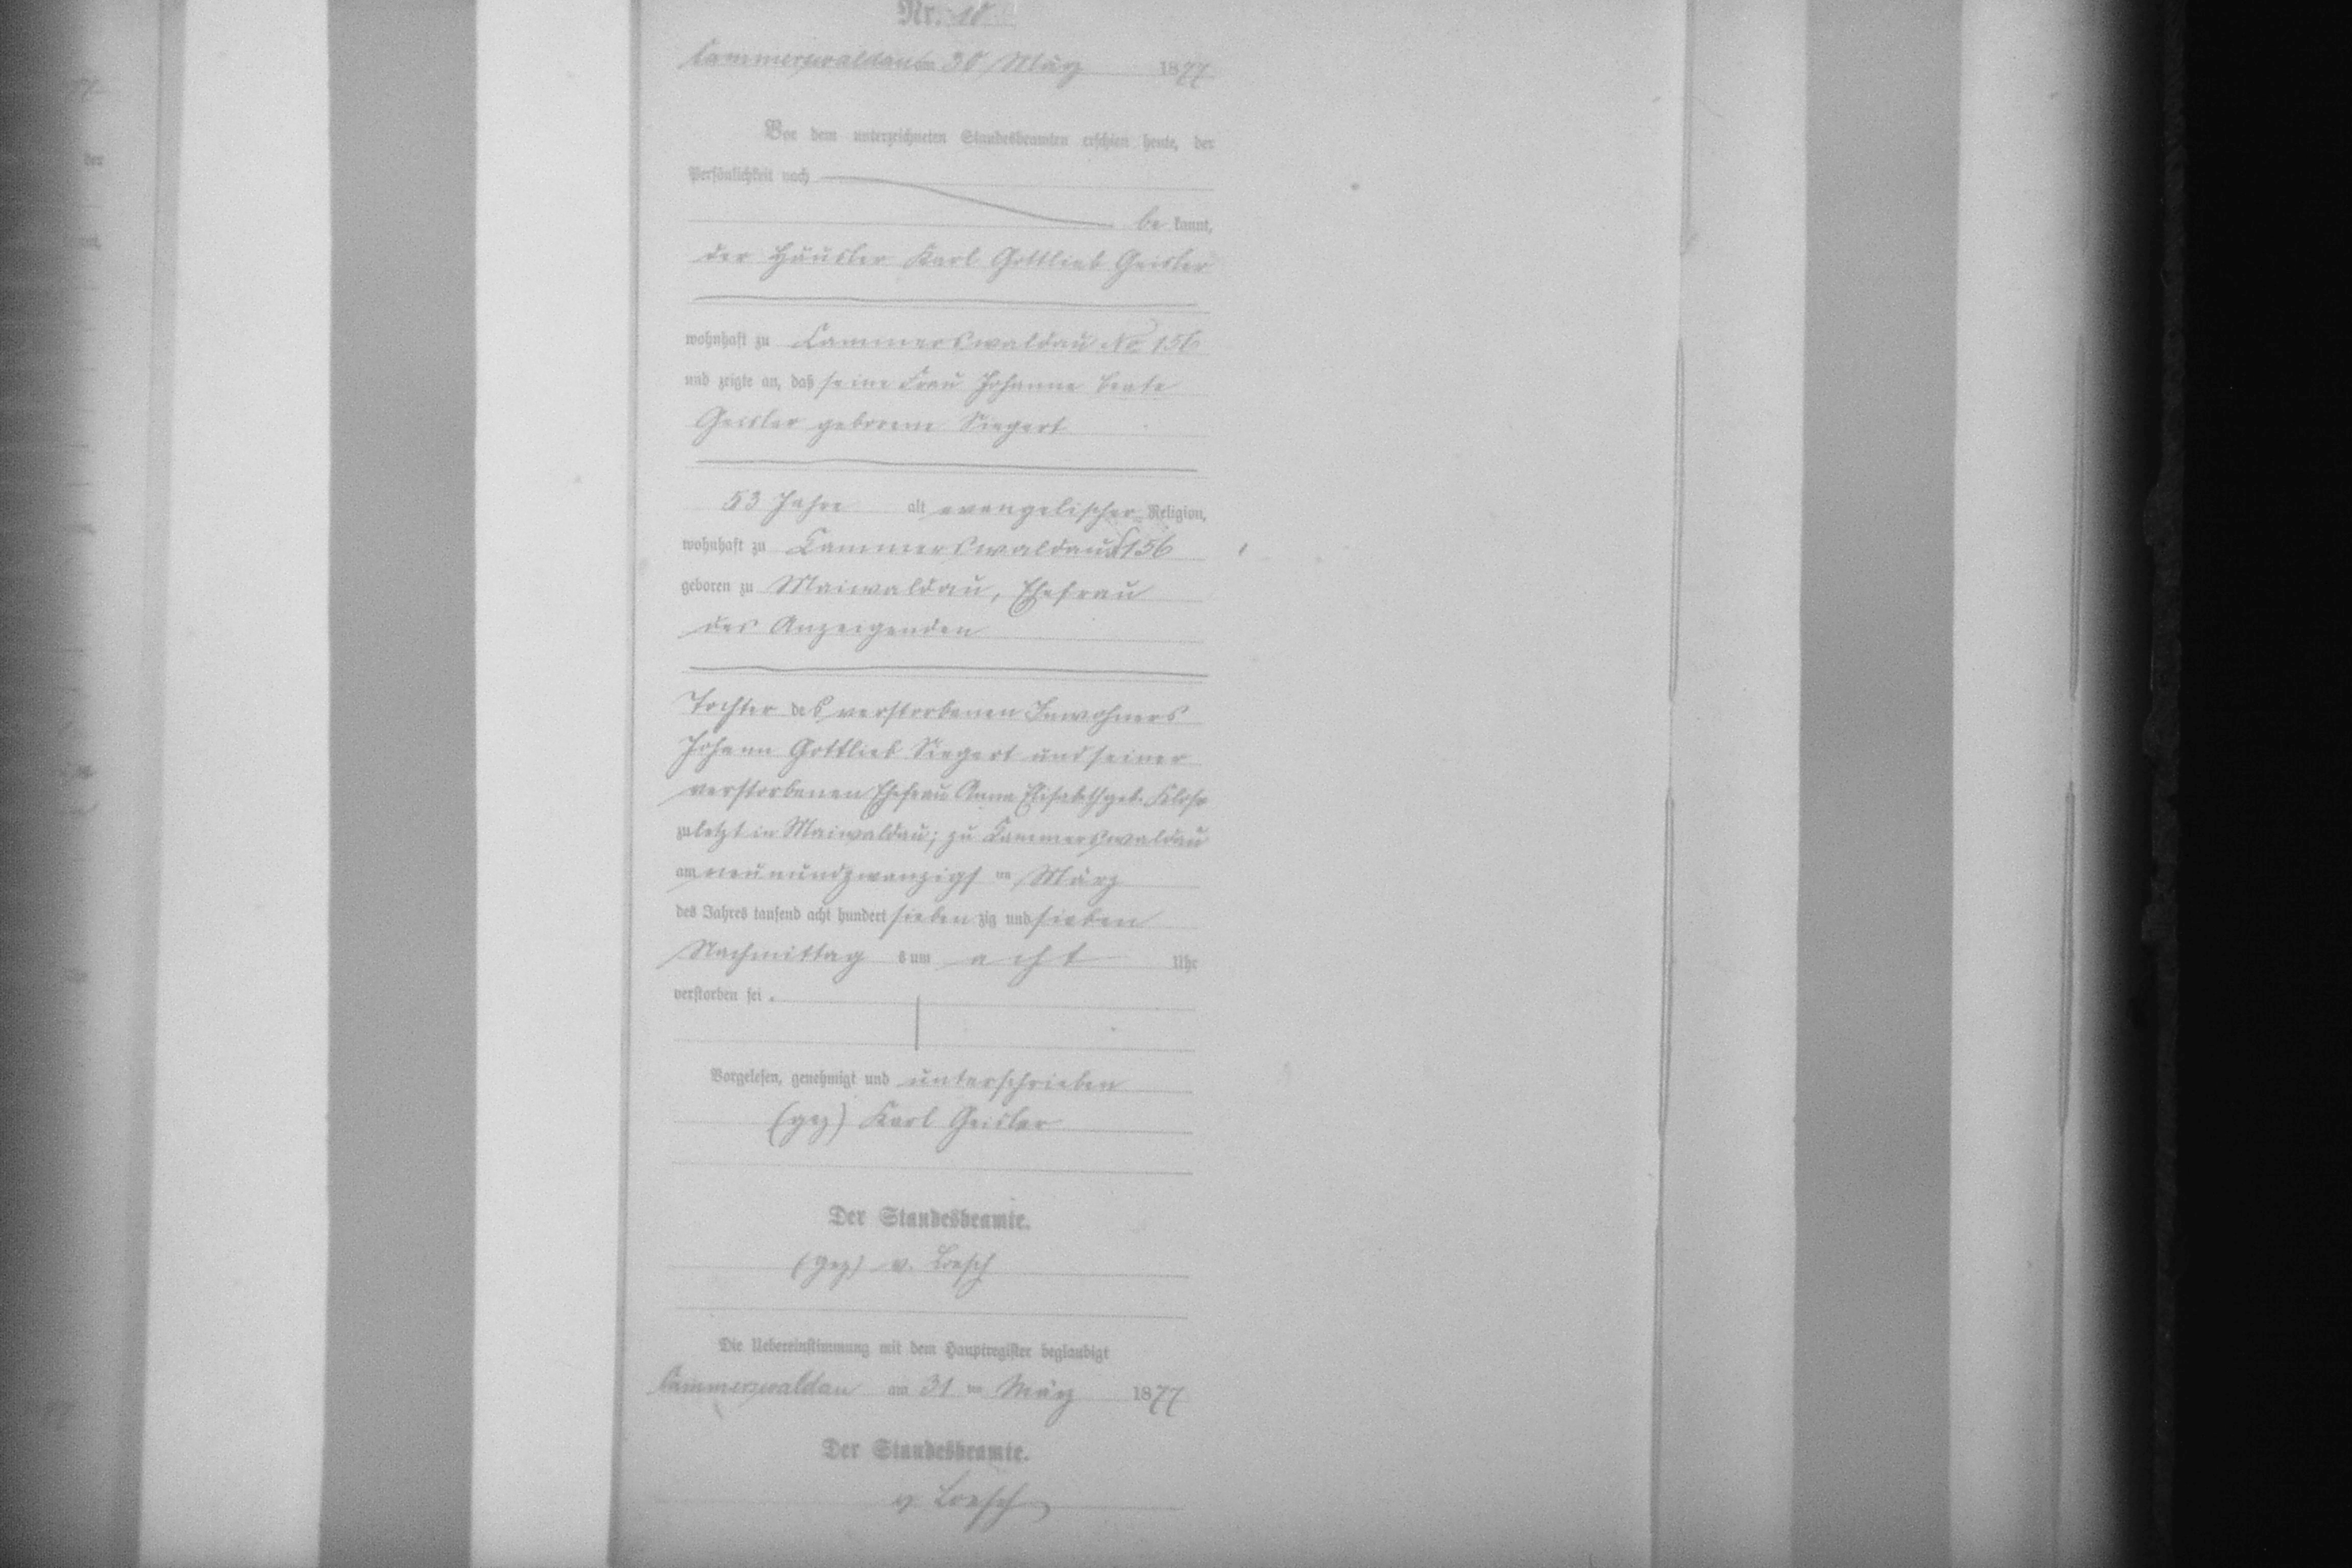 Nr. 10
Cammerswaldau am 30 März 1877
Vor dem unterzeichneten Standesbeamten erschien heute, der
Persönlichkeit nach
be kannt,
der Häusler Karl Gottlieb Geisler
wohnhaft zu Kammerswaldau No. 156
und zeigte an, daß seine Frau Johanne Beate
Geisler geborene Siegert
53 Jahre alt evangelischer Religion,
wohnhaft zu Kammerswaldau 156
geboren zu Maiwaldau, Ehefrau
des Anzeigenden
Tochter des verstorbenen Inwohners
Johann Gottlieb Siegert und seiner
verstorbenen Ehefrau Anna Elisabeth geb. Klose
zuletzt in Maiwaldau; zu Kammerswaldau
am neunundzwanzigsten März
des Jahres tausend acht hundert sieben zig und sieben
Nachmittag s um acht Uhr
verstorben sei.
Vorgelesen, genehmigt und unterschrieben
(gez) Karl Geisler
Der Standesbeamte.
(gez) v. Loesch
Die Uebereinstimmung mit dem Hauptregister beglaubigt
Cammerswaldau am 31 ten März 1877
Der Standesbeamte.
v Loesch